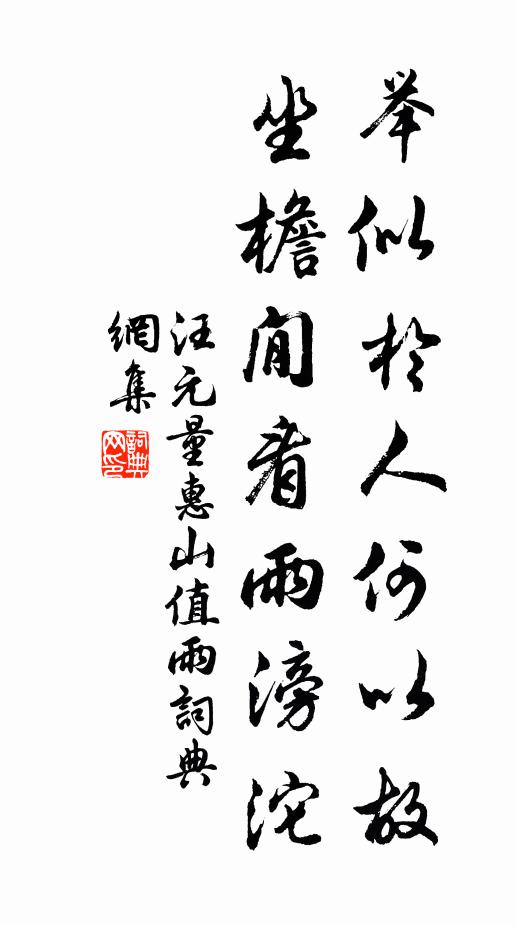 举似於人何以故
坐檐閒看雨滂沱
汪元量惠山值雨詞典
網集
詞典
网印